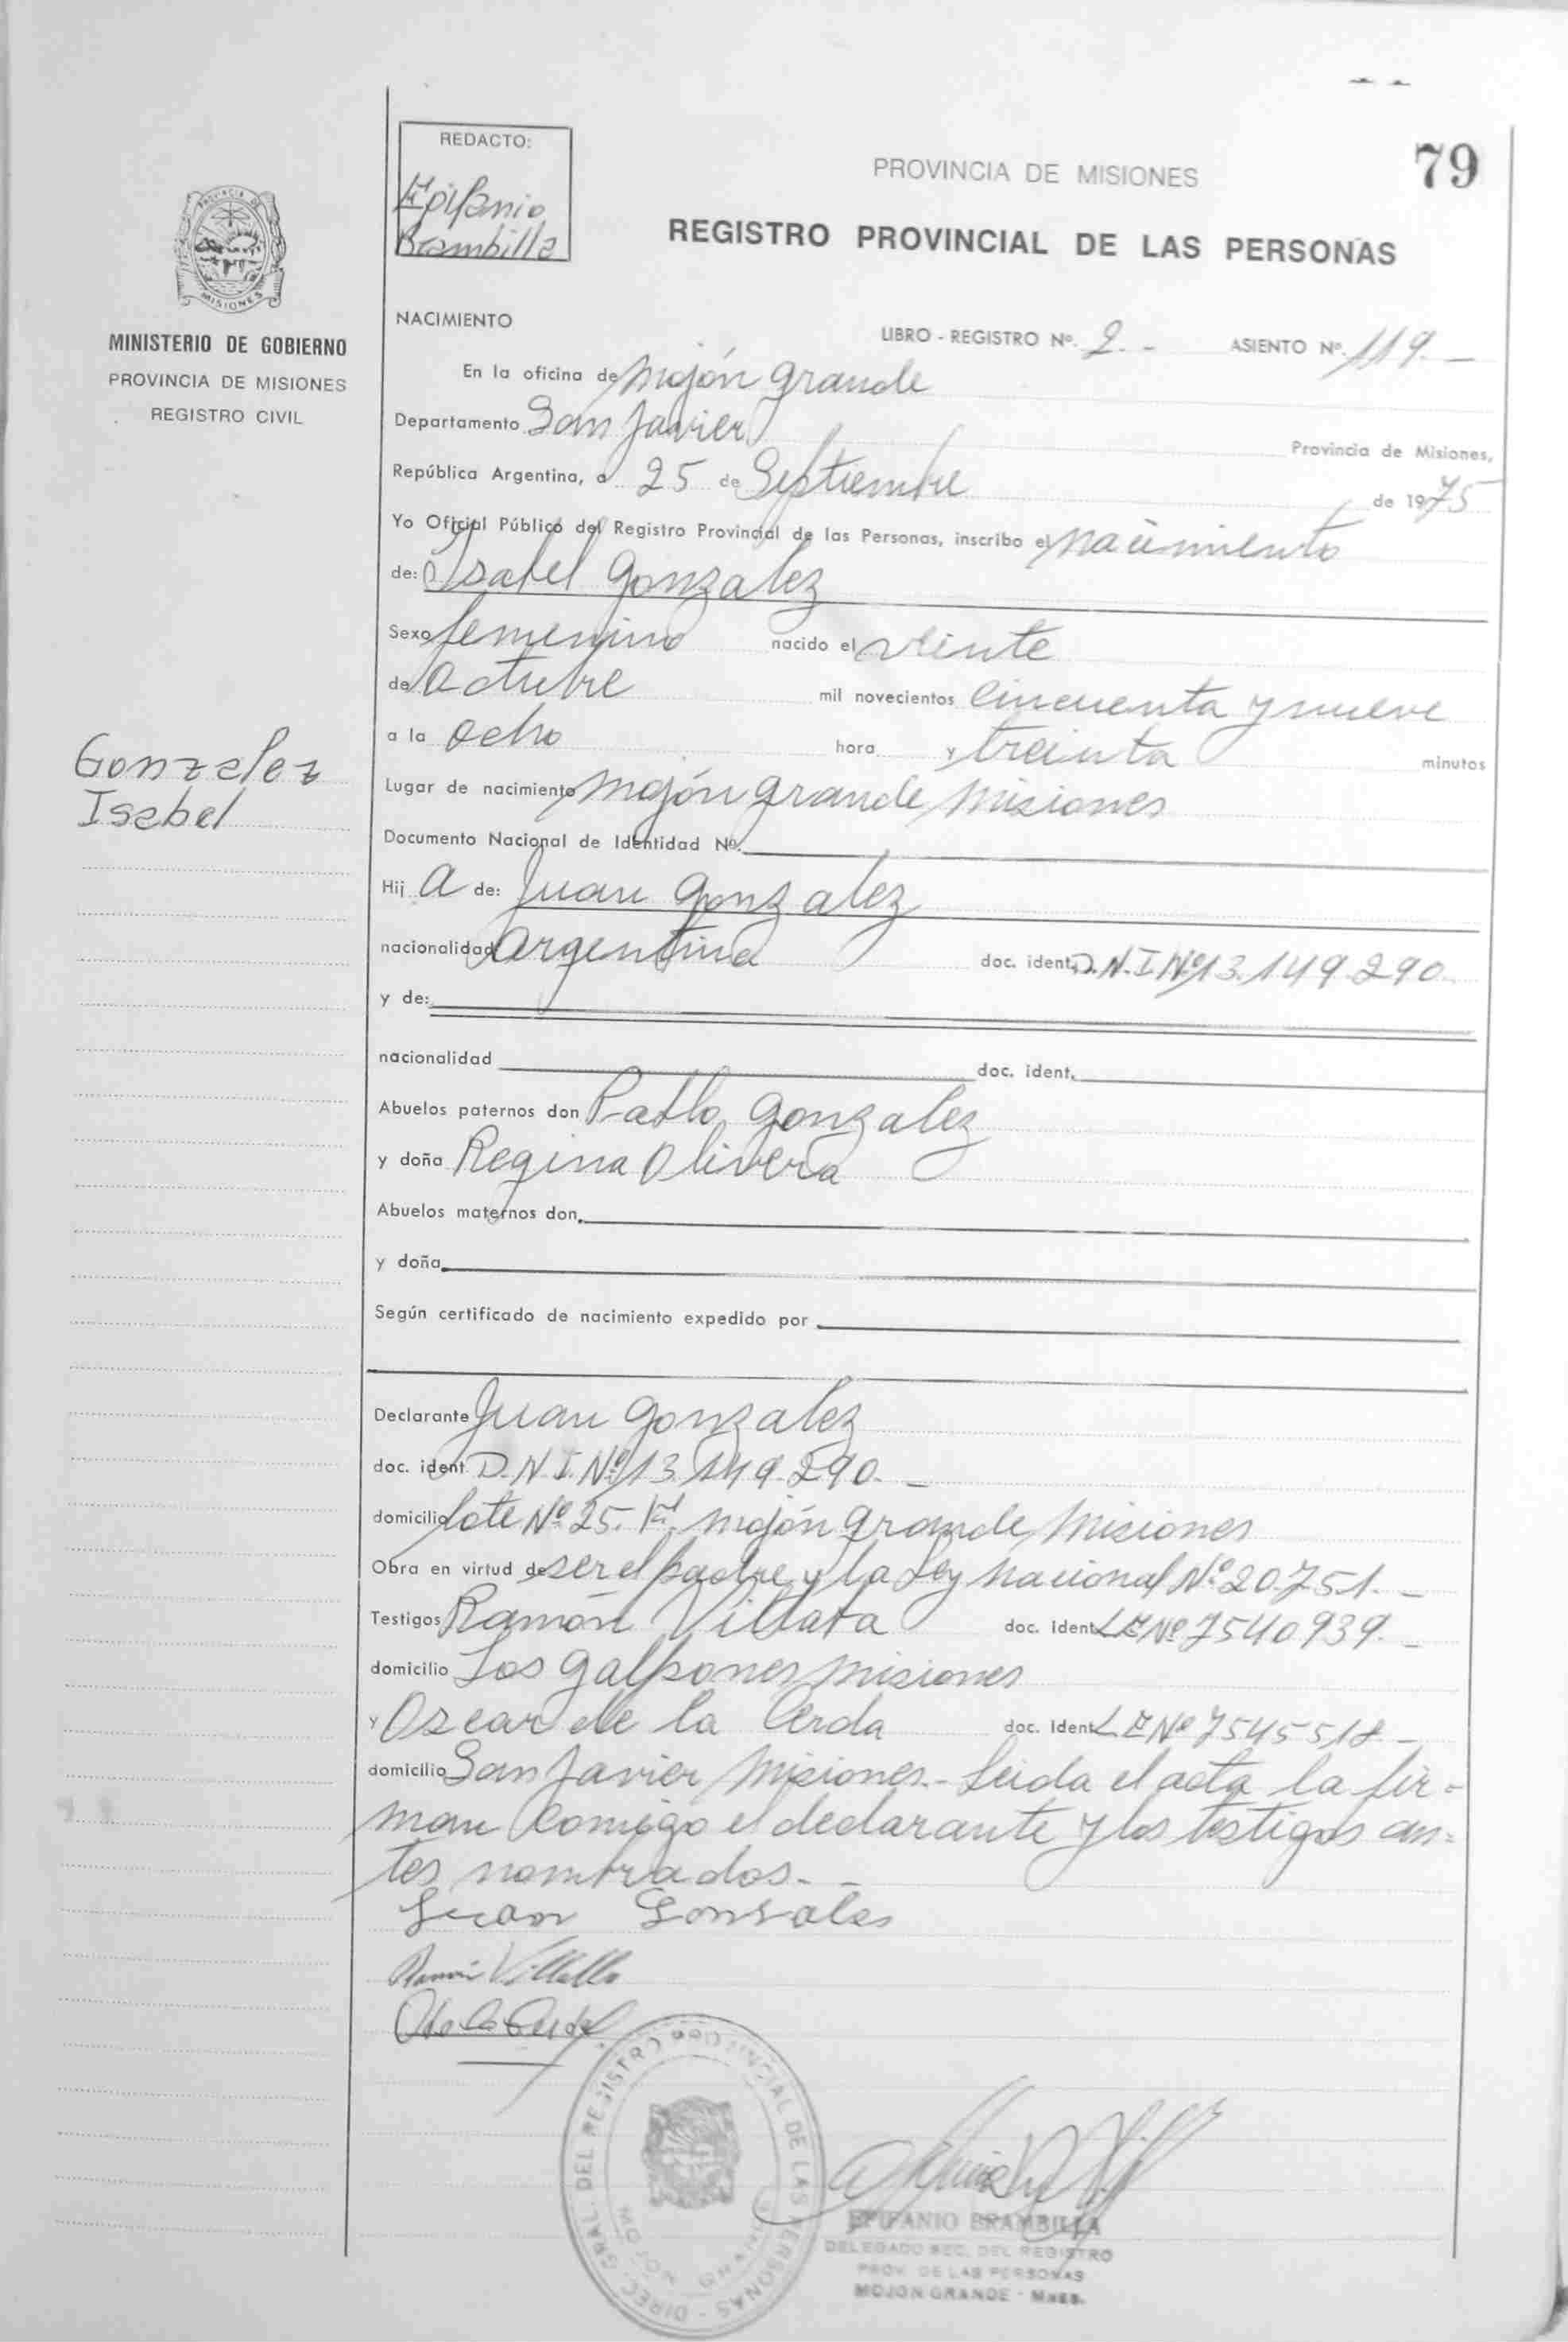 79
REDACTO:
Epifanio
Brambilla
PROVINCIA DE MISIONES
REGISTRO PROVINCIAL DE LAS PERSONAS
PROVINCIA DE
MISIONES
MINISTERIO DE GOBIERNO
PROVINCIA DE MISIONES
REGISTRO CIVIL
NACIMIENTO
LIBRO - REGISTRO Nº. 2. - ASIENTO Nº. 119. -
En la oficina de Mojón grande
Departamento San Javier Provincia de Misiones,
República Argentina, a 25 de Septiembre de 1975
Yo Oficial Público del Registro Provincial de las Personas, inscribo el nacimiento
de: Isabel Gonzalez
Sexo femenino nacido el veinte
de octubre mil novecientos cincuenta y nueve
a la ocho hora y treinta minutos
Gonzalez
Isabel
Lugar de nacimiento Mojón grande, Misiones
Documento Nacional de Identidad Nº.
Hij a de: Juan Gonzalez
nacionalidad argentina doc. ident. D.N.I Nº 13.149.290.
y de:
nacionalidad doc. ident.
Abuelos paternos don Pablo Gonzalez
y doña Regina Olivera
Abuelos maternos don
y doña
Según certificado de nacimiento expedido por
Declarante Juan Gonzalez
doc. ident D.N.I. Nº 13.149.290. -
domicilio lote Nº 25. Mojón grande, Misiones
Obra en virtud de ser el padre y la Ley nacional Nº 20.751. -
Testigos Ramón doc. ident L.E Nº 7540939. -
domicilio Los galpones Misiones
y Oscar de la Cerda doc. ident L.E Nº 7545518 -
domicilio San Javier, Misiones.- Leida el acta la fir=
man comigo el declarante y los testigos an=
tes nombrados. -
Juan Gonsales
Ramón Villalba
DIREC. GRAL. DEL REGISTRO PROVINCIAL DE LAS PERSONAS
MOJON GRANDE
EPIFANIO BRAMBILLA
DELEGADO SEC. DEL REGISTRO
PROV. DE LAS PERSONAS
MOJON GRANDE - Mnes.